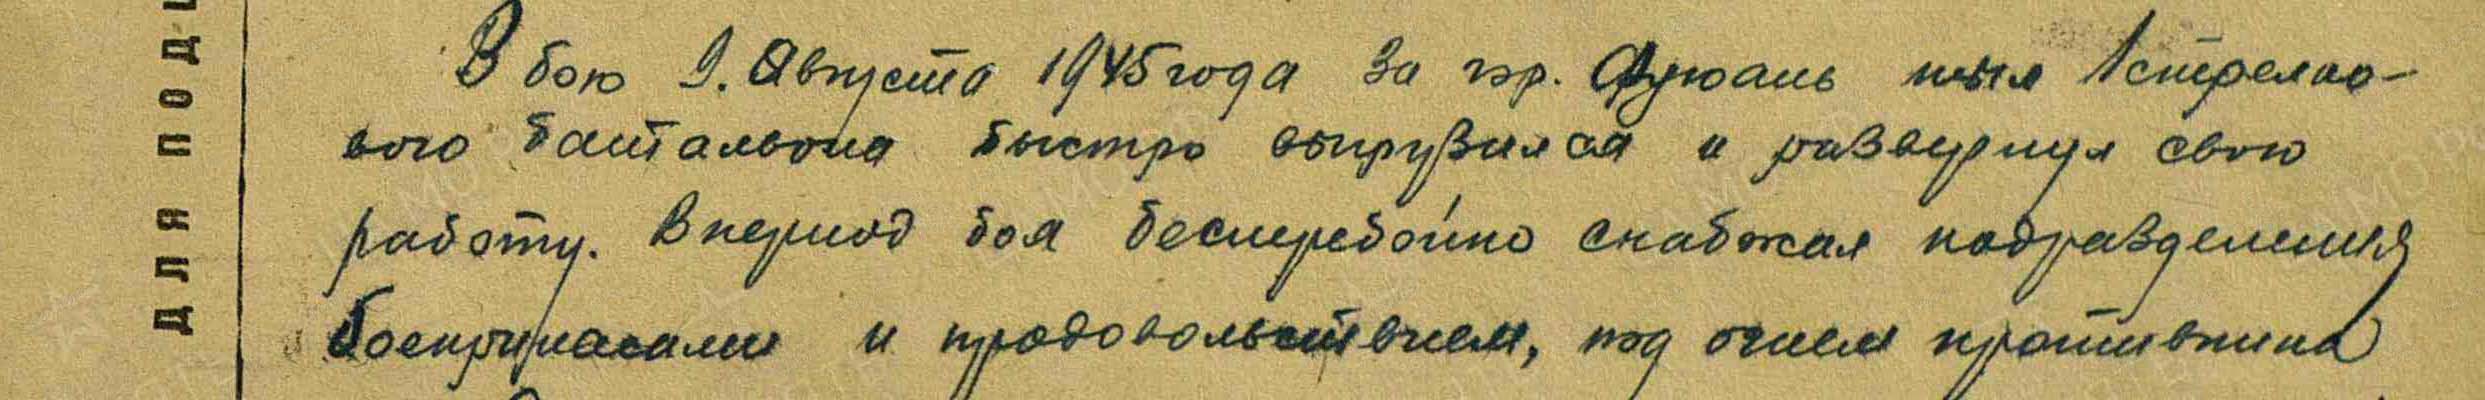 В бою 9. Августа 1945 года за гор. Фуюань тыл 1 стрелко-
вого баитальона быстро выгрузился и развернул свою
работу. В период боя бесперебойно снабжал подразделения
боеприпасами и продовольствием, под огнем противника
ДЛЯ ПОД